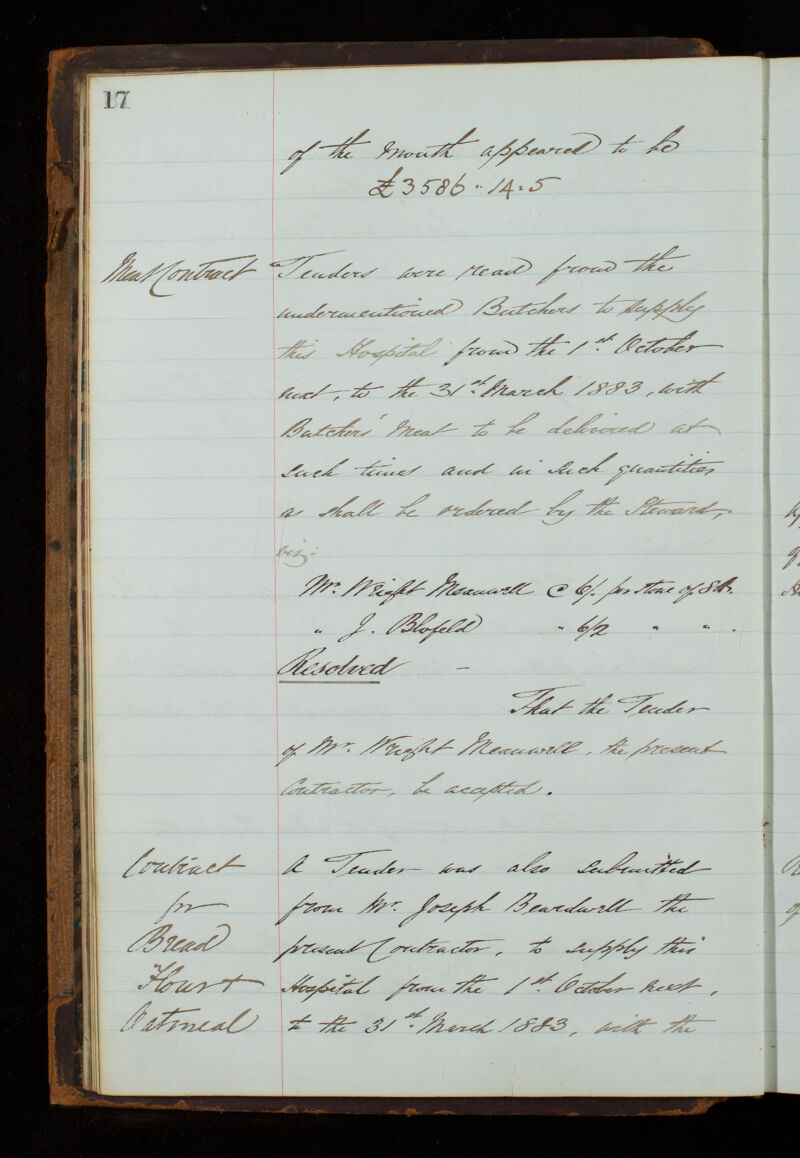 17
of the Month appeared to be
£3586 " 14 " 5
Meat Contract
Tenders were read from the
undermentioned Butchers to supply
this Hospital from the 1st. October
next, to the 31st. March 1883, with
Butchers' Meat to be delivered at
such times and in such quantities
as shall be ordered by the Steward,
viz:
Mr. Wright Meanwell @ 6/. per stone of 8 lbs.
" J. Blofeld " 6/2 " " .
Resolved –
That the Tender
of Mr. Wright Meanwell, the present
Contractor, be accepted.
Contract
for
Bread
Flour +
Oatmeal
A Tender was also submitted
from Mr. Joseph Beardwell the
present Contractor, to supply this
Hospital from the 1st. October next,
to the 31st. March 1883, with the